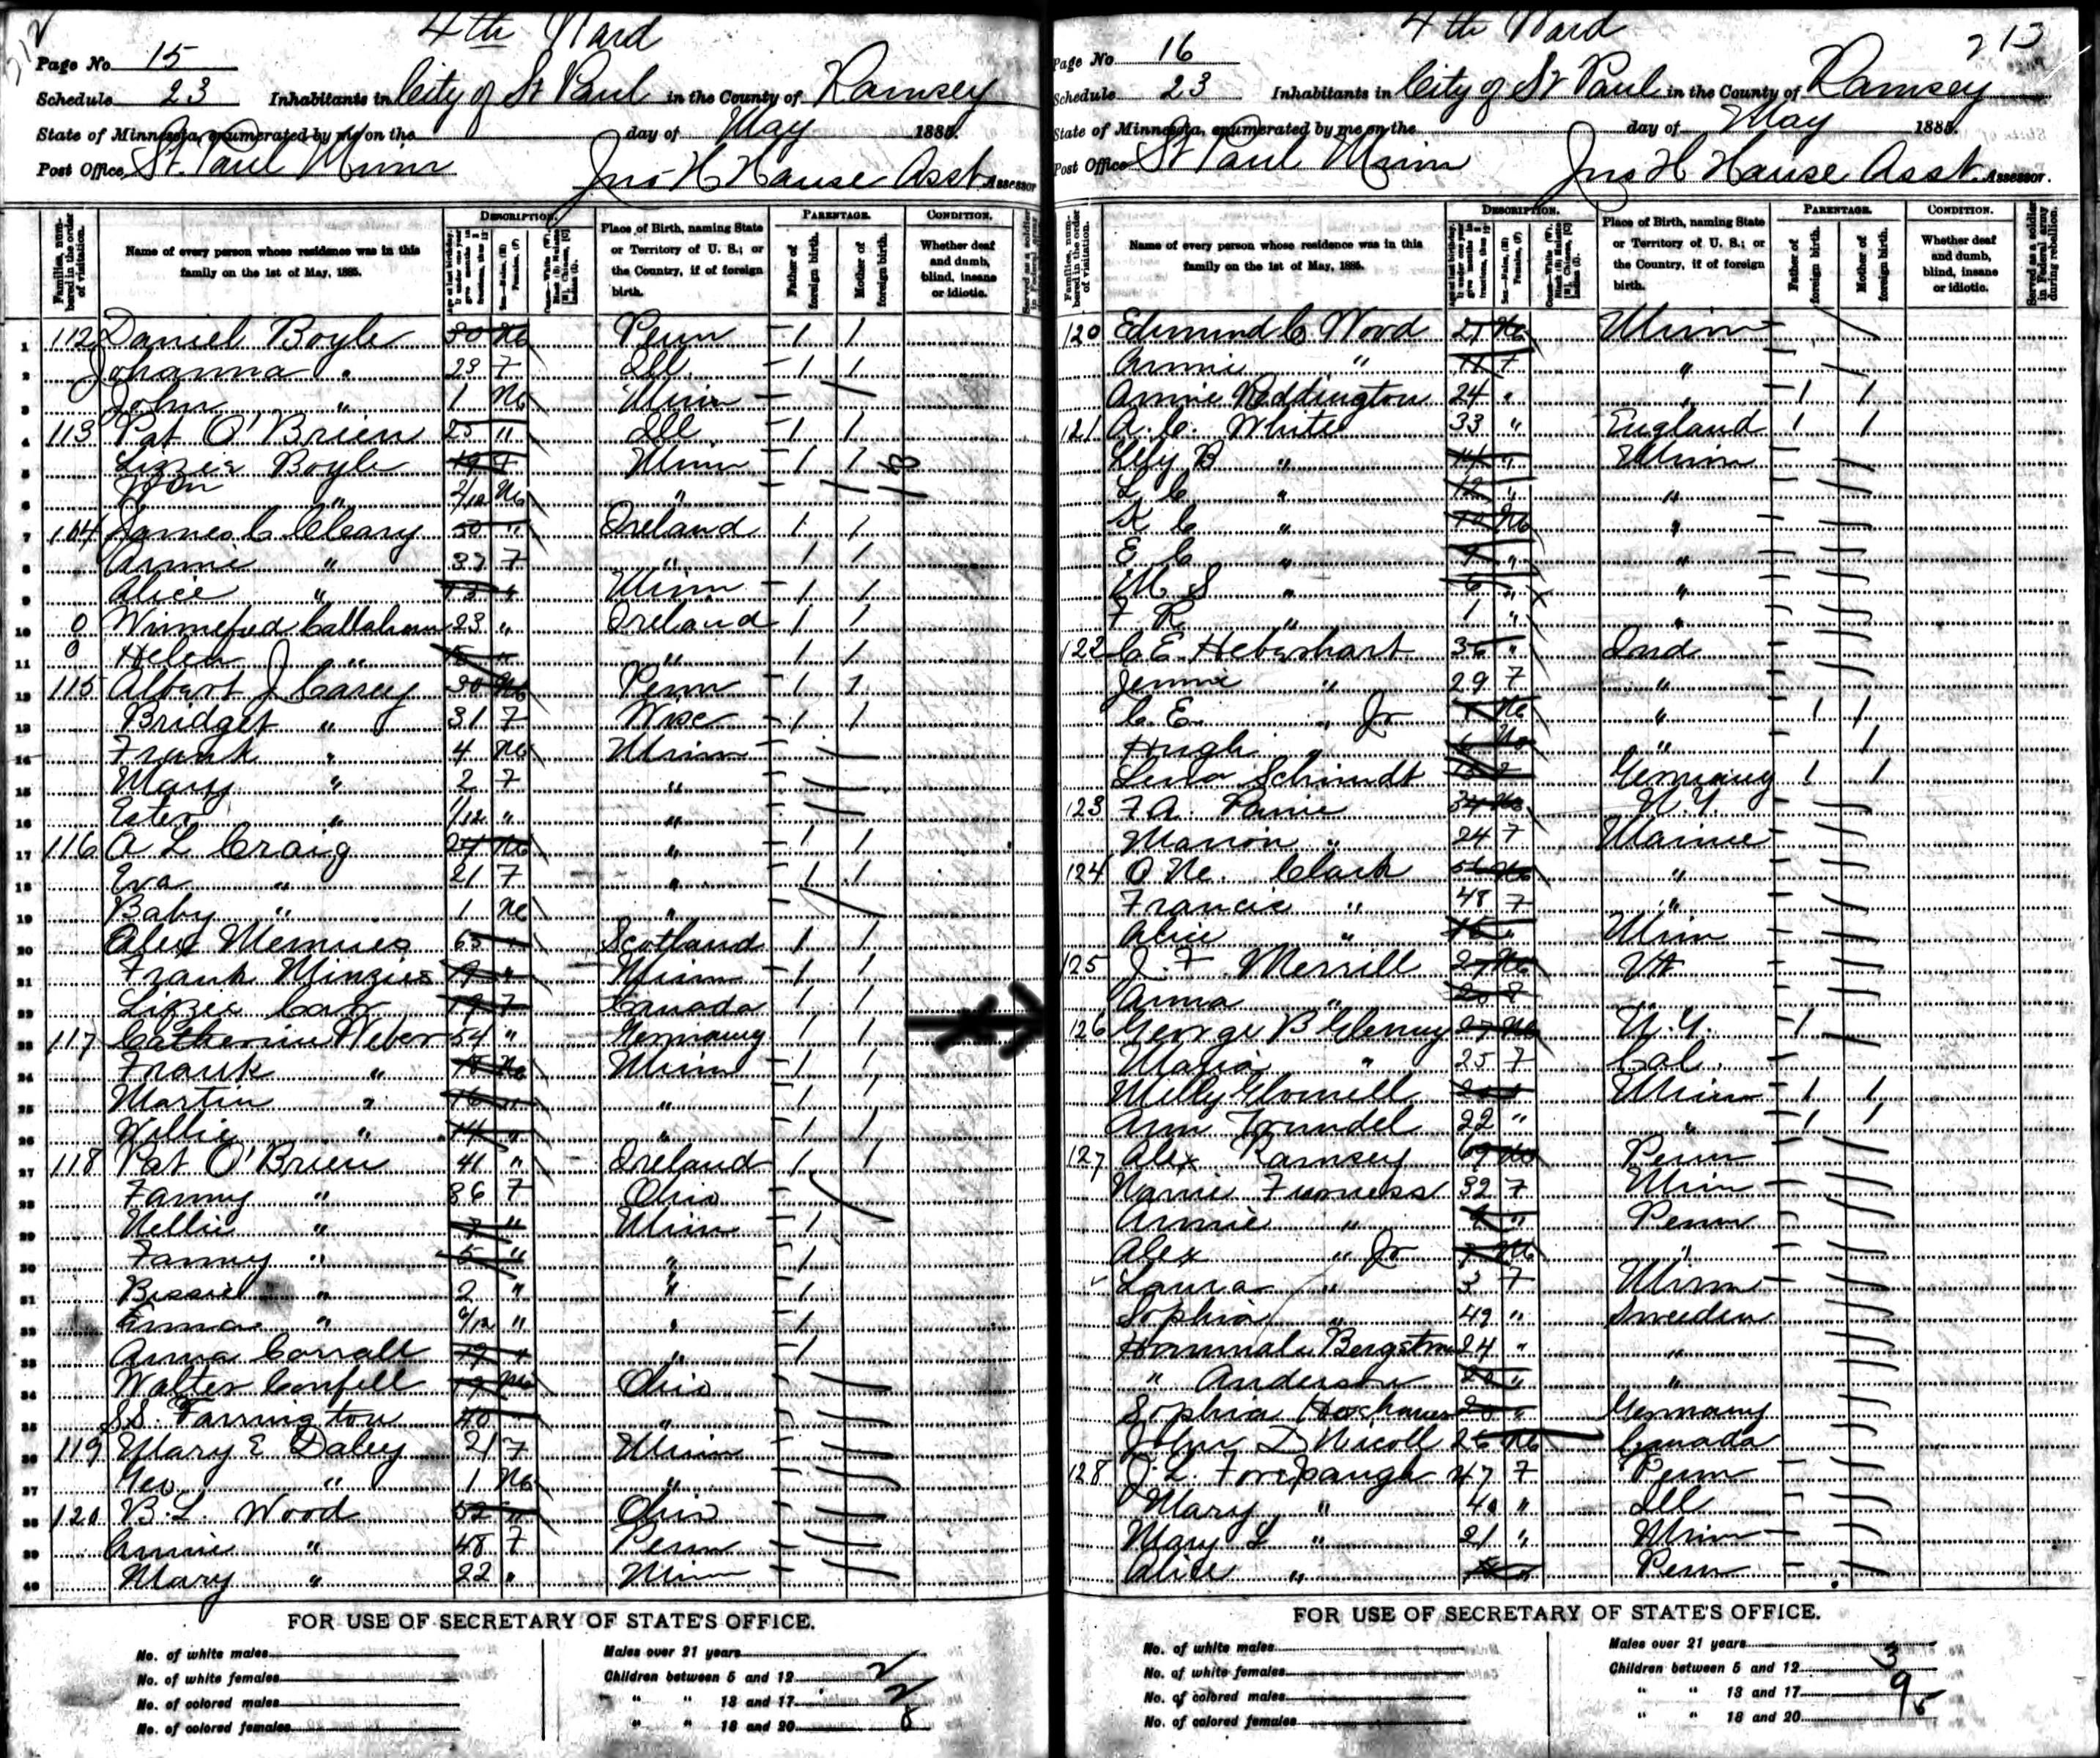 212
4th Ward
Page No. 15
Schedule 23 Inhabitants in City of St Paul in the County of Ramsey
State of Minnesota, enumerated by me on the day of May 1885.
Post Office, St. Paul Minn Jno H Hause Asst Assessor
Families, numbered in the order of visitation.
Name of every person whose residence was in this family on the 1st of May, 1885.
DESCRIPTION.
Place of Birth, naming State or Territory of U. S.; or the Country, if of foreign birth.
PARENTAGE.
Father of foreign birth.
Mother of foreign birth.
CONDITION.
Whether deaf and dumb, blind, insane or idiotic.
1 112 Daniel Boyle 30 M Penn 1 1
2 Johanna " 23 F Ill. 1 1
3 John " 1 M Minn
4 113 Pat O'Brien 25 " Ill 1 1
5 Lizzie Boyle 19 F Minn 1 1
6 John " 2/12 M "
7 114 James C Cleary 50 " Ireland 1 1
8 Annie " 37 F " 1 1
9 Alice " 13 " Minn 1 1
10 0 Winnefred Callahan 23 " Ireland 1 1
11 0 Helen J " " " 1 1
12 115 Albert J Carey 30 M Penn 1 1
13 Bridget " 31 F Wisc 1 1
14 Frank " 4 M Minn
15 Mary " 2 F "
16 Ester " 1/12 " "
17 116 A L Craig 24 M " 1 1
18 Eva " 21 F " 1 1
19 Baby " 1 M "
20 Alex Mennies 65 " Scotland 1 1
21 Frank Minzies 19 " Minn 1 1
22 Lizzee Carr 19 F Canada 1 1
23 117 Catherine Weber 54 " Germany 1 1
24 Frank " 18 M Minn 1 1
25 Martin " 16 " " 1 1
26 Willie " 14 " " 1 1
27 118 Pat O'Brien 41 " Ireland 1 1
28 Fanny " 36 F Ohio
29 Nellie " 7 " Minn 1
30 Fanny " 5 " " 1
31 Bessie " 2 " " 1
32 Emma " /12 " " 1
33 Anna Corrall 19 " " 1
34 Walter 19 M Ohio
35 S.S. Farrington 40 " "
36 119 Mary E Daley 21 F Minn
37 Geo " 1 M "
38 120 B.L. Wood 52 " Ohio
39 Annie " 48 F Penn
40 Mary " 22 " Minn
FOR USE OF SECRETARY OF STATE'S OFFICE.
No. of white males
No. of white females
No. of colored males
No. of colored females
Males over 21 years
Children between 5 and 12 2
" " 13 and 17 2
" " 18 and 20 8
4th Ward
213
Page No 16
Schedule 23 Inhabitants in City of St Paul in the County of Ramsey
State of Minnesota, enumerated by me on the day of May 1885.
Post Office St Paul Minn Jno H Hause Asst. Assessor.
Families, numbered in the order of visitation.
Name of every person whose residence was in this family on the 1st of May, 1885.
DESCRIPTION.
Place of Birth, naming State or Territory of U. S.; or the Country, if of foreign birth.
PARENTAGE.
Father of foreign birth.
Mother of foreign birth.
CONDITION.
Whether deaf and dumb, blind, insane or idiotic.
Served as a soldier in Federal army during rebellion.
120 Edmund C Wood 21 M Minn
Annie " 11 F "
Annie Reddington 24 " " 1 1
121 A. C. White 33 " England 1 1
Lily B " 14 " Minn
L C " 12 " "
K C " 10 M "
E C " 9 " "
M S " 6 " "
F R " 1 " "
122 C E Heberhart 36 " Ind
Jennie " 29 F "
C. E. " Jr M " 1 1
Hugh " M " 1
Lena Schmidt F Germany 1 1
123 F A. 34 M N.Y.
Marion " 24 F Maine
124 O Mc. Clark M "
Francis " 48 F "
Alice " 16 " Minn
125 J. F. Merrill 27 M Vt
Anna " F "
126 George B Glenny 27 M N.Y. 1
Maria " 25 F Cal.
Milly " Minn 1 1
Ann Trundel 22 " " 1 1
127 Alex Ramsey 69 M Penn
Narnie Furness 32 F Minn
Annie " 9 " Penn
Alex " Jr 7 M "
Laura " 3 F Minn
Sophia " 49 " Sweeden
Bergstrom 24 " "
" Anderson 20 " "
Sophia 20 " Germany
John D Nicoll 26 M Canada
128 J. L. Forepaugh 47 F Penn
Mary " 40 " Ill
Mary L " 21 " Minn
Alice " " Penn
FOR USE OF SECRETARY OF STATE'S OFFICE.
No. of white males
No. of white females
No. of colored males
No. of colored females
Males over 21 years
Children between 5 and 12 3
" " 13 and 17 9
" " 18 and 20 5